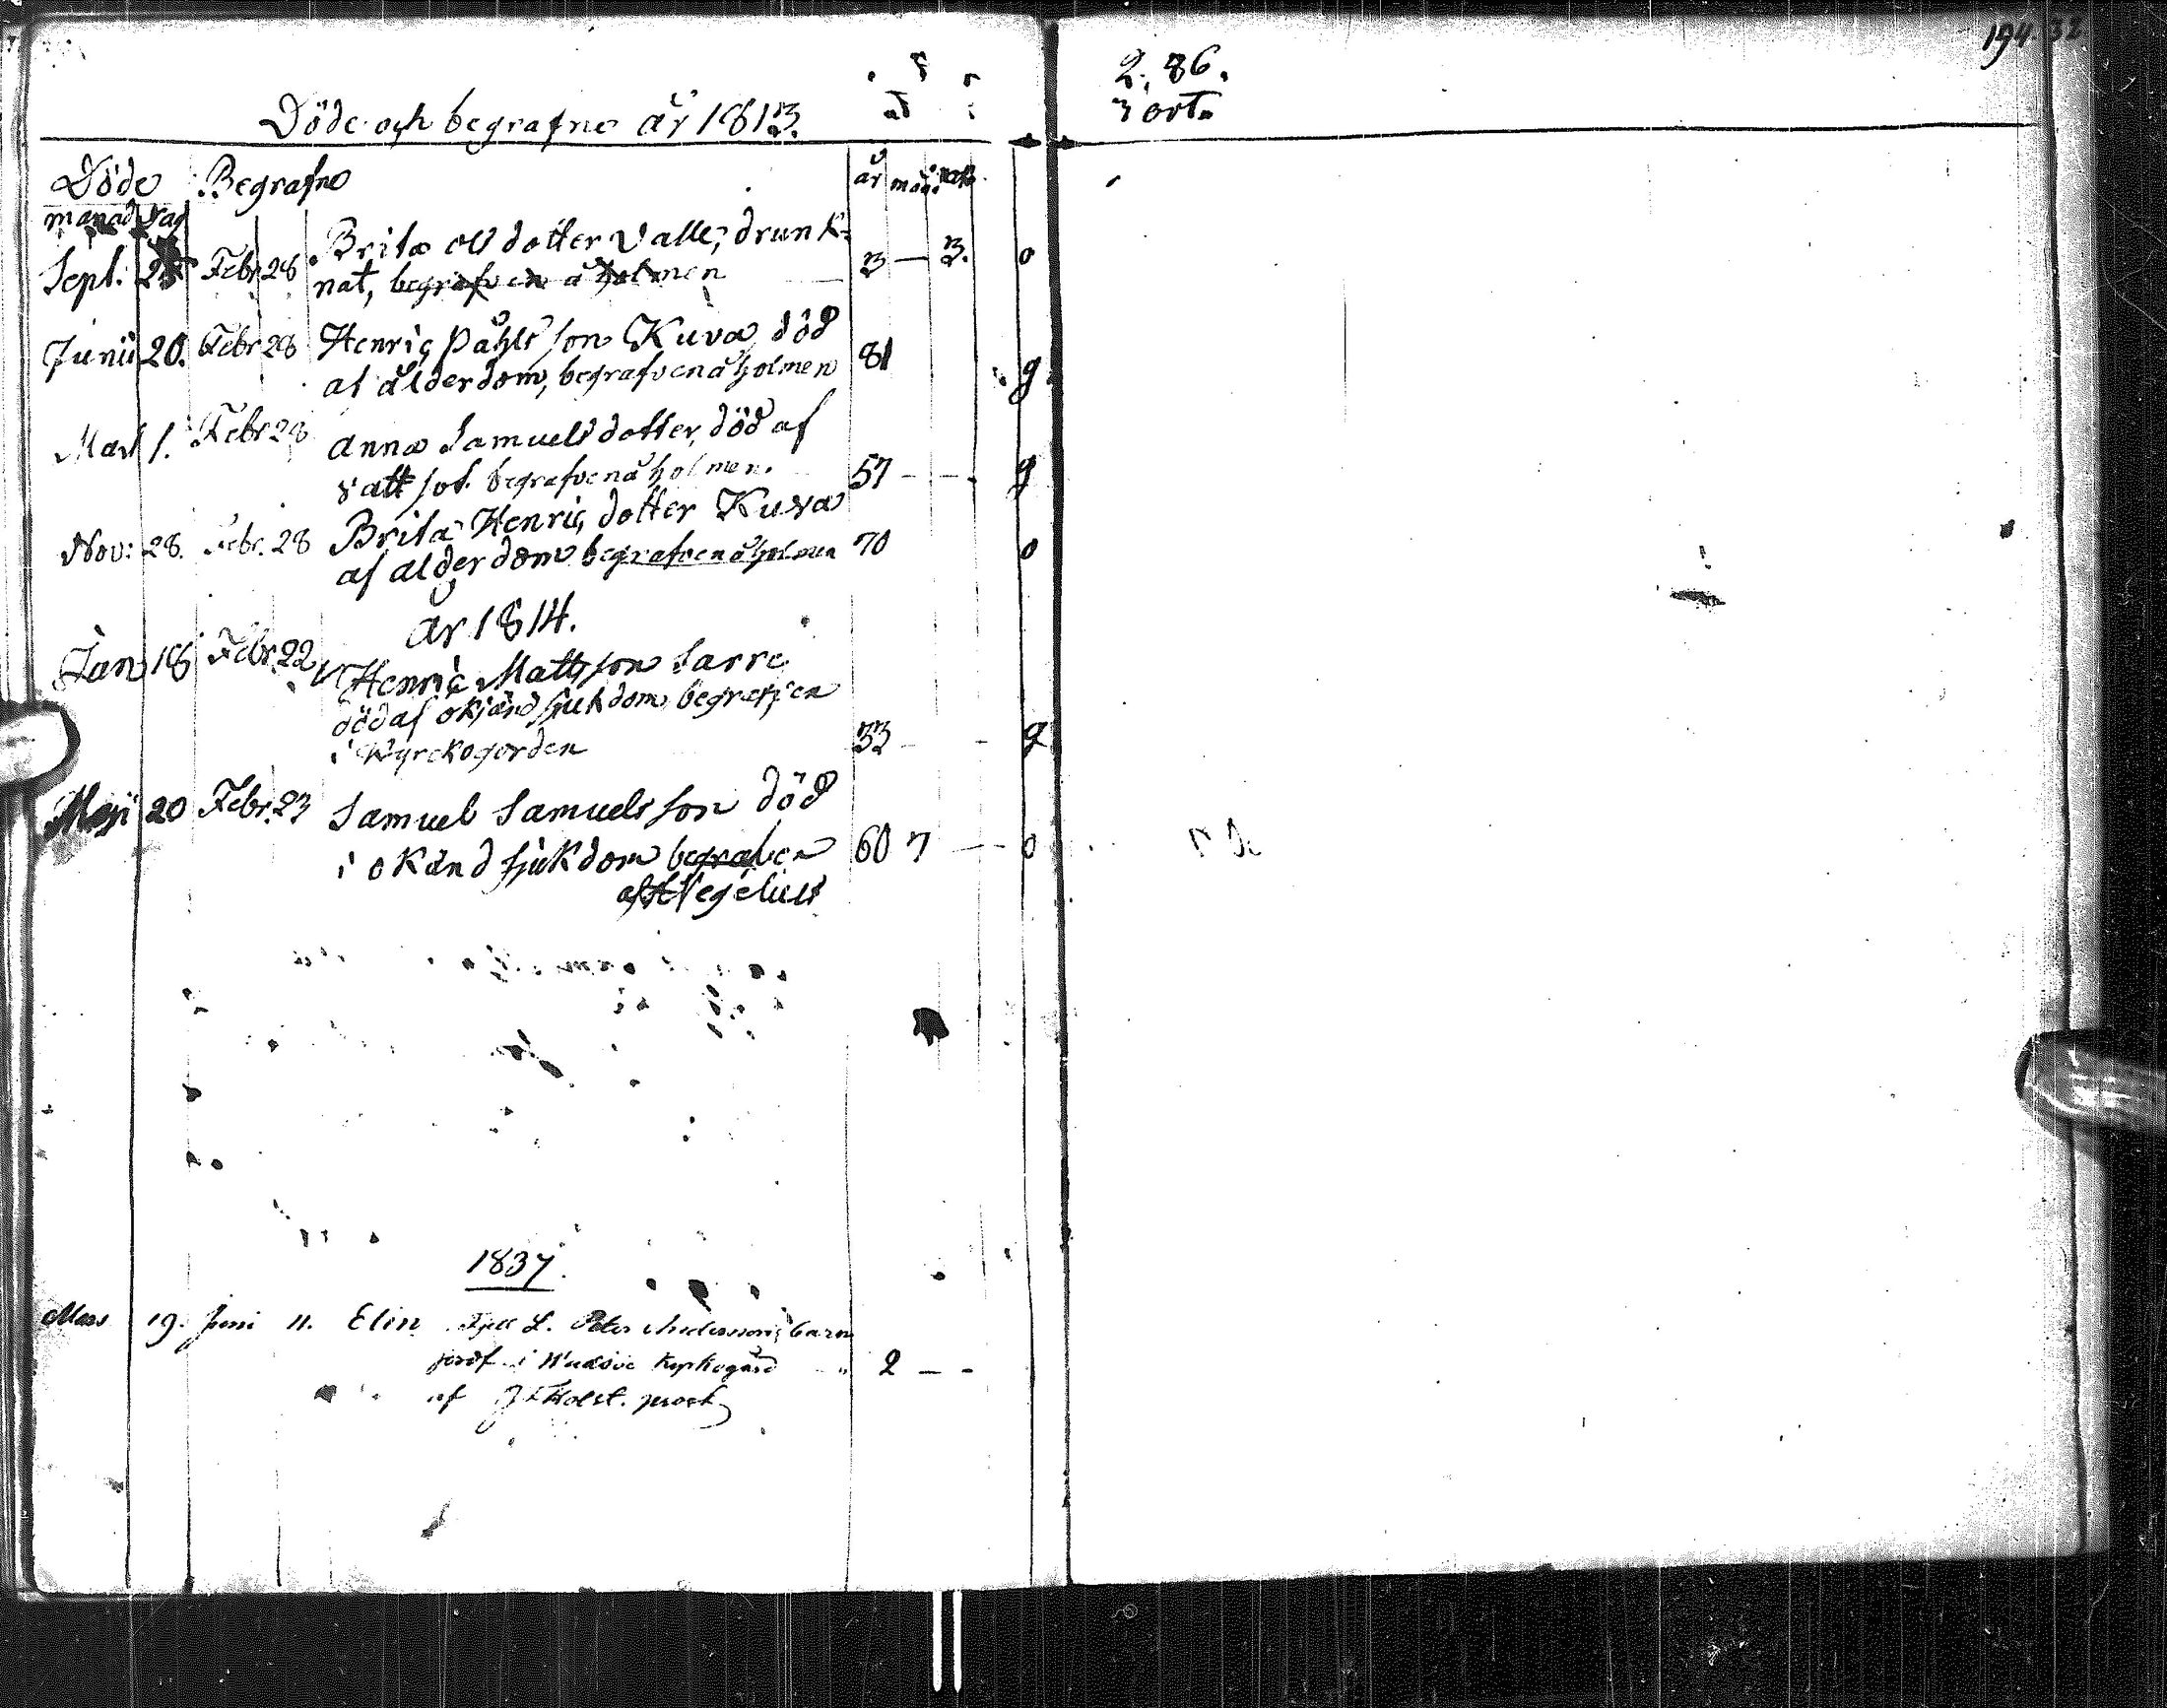 194. 32
2. 86.
Döde och begrafne år 1813.
Döde Begrafne år
månad dag
Sept. 25 Febr 28 Brita ols dotter Valle, drunk-
nat, begrafven å holmen 3 — 3. o
Junii 20. Febr 28 Henric Påhls son Kuva död
af ålderdom, begrafven å holmen 81 g
Mart 1. Febr 28 Anna Samuels dotter, död af
vattsot. begrafven å holmen. 57 - - g
Nov: 28. Febr. 28 Brita Henrics dotter Kuva
af ålderdom begrafven å holmen 70 o
år 1814.
Jan 18 Febr 22 Henric Matts son Sarri
död af okjänd sjukdom, begrafven
i Kyrckogorden 33 - - g
Maji 20 Febr. 23 Samuel Samuels son död
i okänd sjukdom begraven 60 7 — o
af
1837.
Mars 19. Juni 11. Elin L. Peter Anderssons barn
jordf. i Kyrkogård " 2 — -
af Holst.